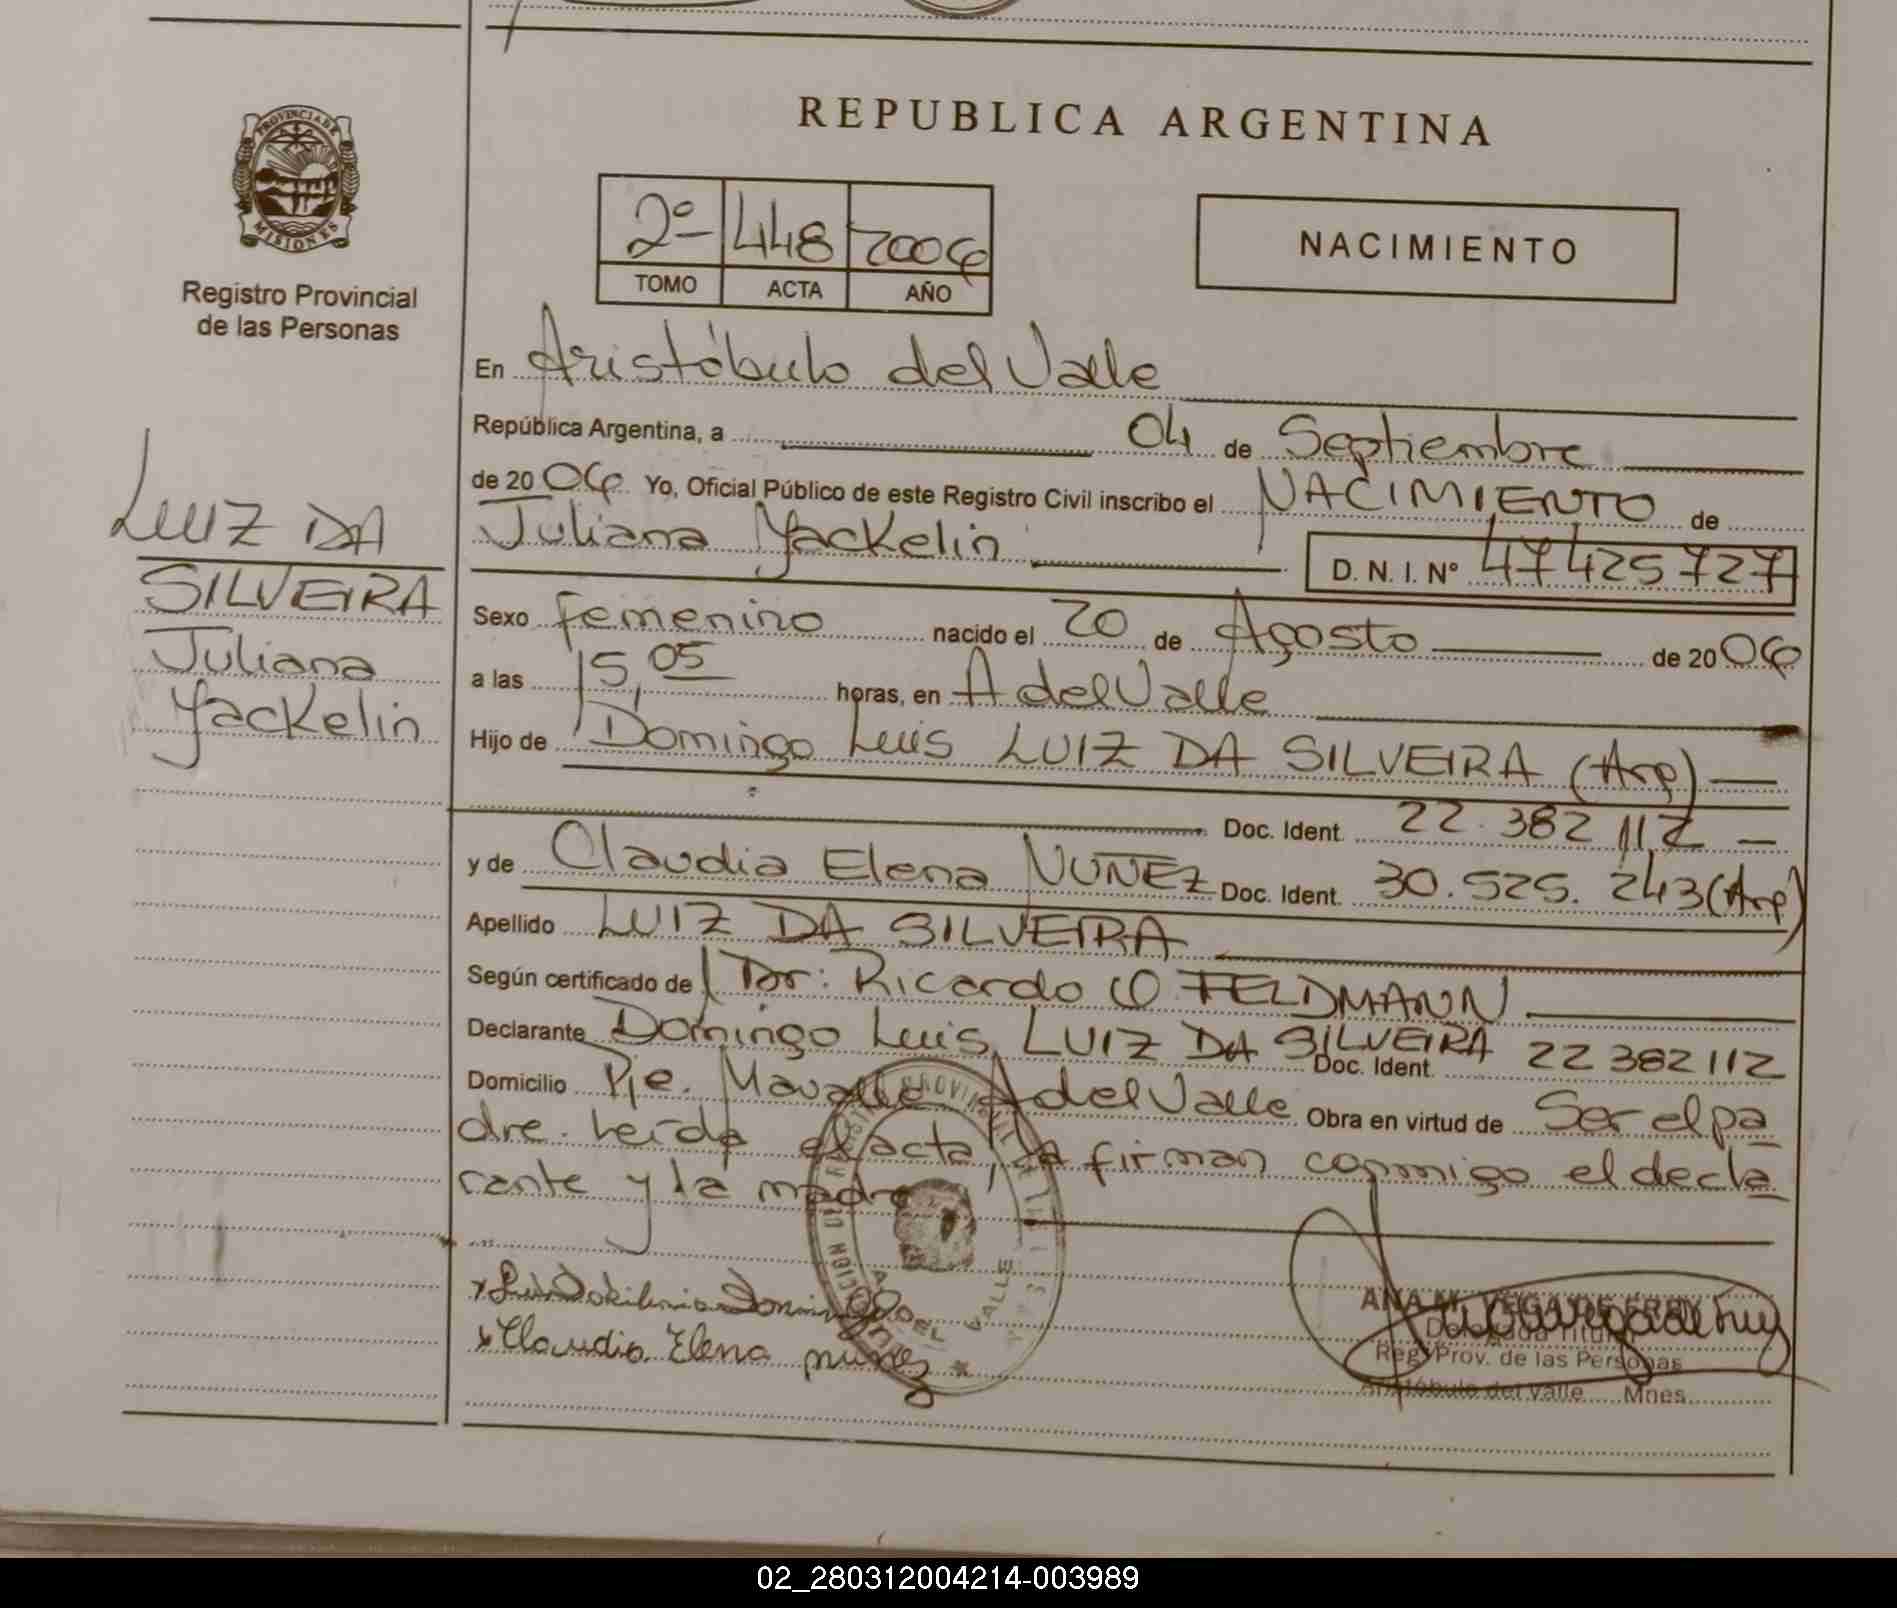 PROVINCIA DE
MISIONES
Registro Provincial
de las Personas
LUIZ DA
SILVEIRA
Juliana
Yackelin
REPUBLICA ARGENTINA
2º 448 2006
TOMO ACTA AÑO
NACIMIENTO
En Aristóbulo del Valle
República Argentina, a 04 de Septiembre
de 2006 Yo, Oficial Público de este Registro Civil inscribo el NACIMIENTO de
Juliana Yackelin
D. N. I. Nº 47425727
Sexo femenino nacido el 20 de Agosto de 2006
a las 15,05 horas, en A del Valle
Hijo de Domingo Luis LUIZ DA SILVEIRA (Arg)
Doc. Ident. 22.382 112
y de Claudia Elena NUÑEZ Doc. Ident. 30.525.243 (Arg)
Apellido LUIZ DA SILVEIRA
Según certificado de Dr: Ricardo O FELDMANN
Declarante Domingo Luis LUIZ DA SILVEIRA
Doc. Ident. 22382112
Domicilio Pje. A del Valle Obra en virtud de Ser el pa
dre. Leída el acta, la firman conmigo el decla
rante y la madre
Claudia Elena nuñez
ANA M. VEGA DE
Delegada Titular
Reg. Prov. de las Personas
Aristóbulo del Valle Mnes.
A. DEL VALLE
02_280312004214-003989